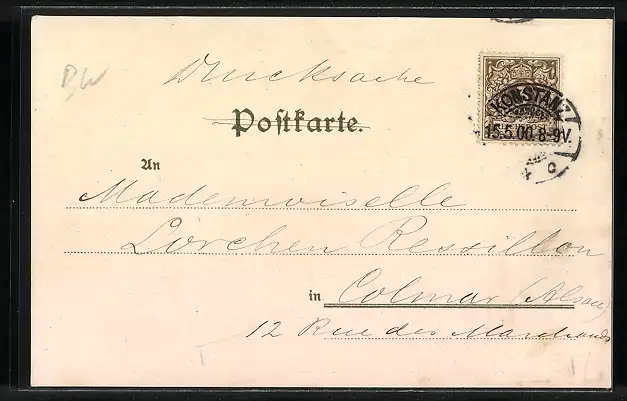 BW
Drucksache
Postkarte.
KONSTANZ
15.5.00.8-9V.
c
An
Mademoiselle
Lorchen Ressillon
in Colmar (Alsace)
12 Rue des Marchands